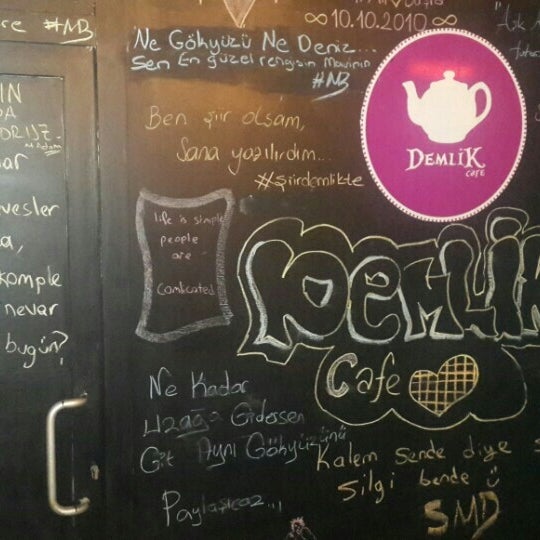 ∞ 10.10.2010 ∞
re #NB
Ne Gökyüzü Ne Deniz...
Sen En güzel rengisin Mavinin
#NB
DEMLİK
CAFE
Ben şiir olsam,
Sana yazılırdım...
#şiirdemlikte
life is simple
people
are
Comlicated
DEMLİK
Cafe
IN
DA
nar
evesler
a,
komple
nevar
bugün?
Ne Kadar
Uzağa Gidersen
Git Aynı Gökyüzünü
Paylaşıcaz...
Kalem sende diye
Silgi bende
SMD